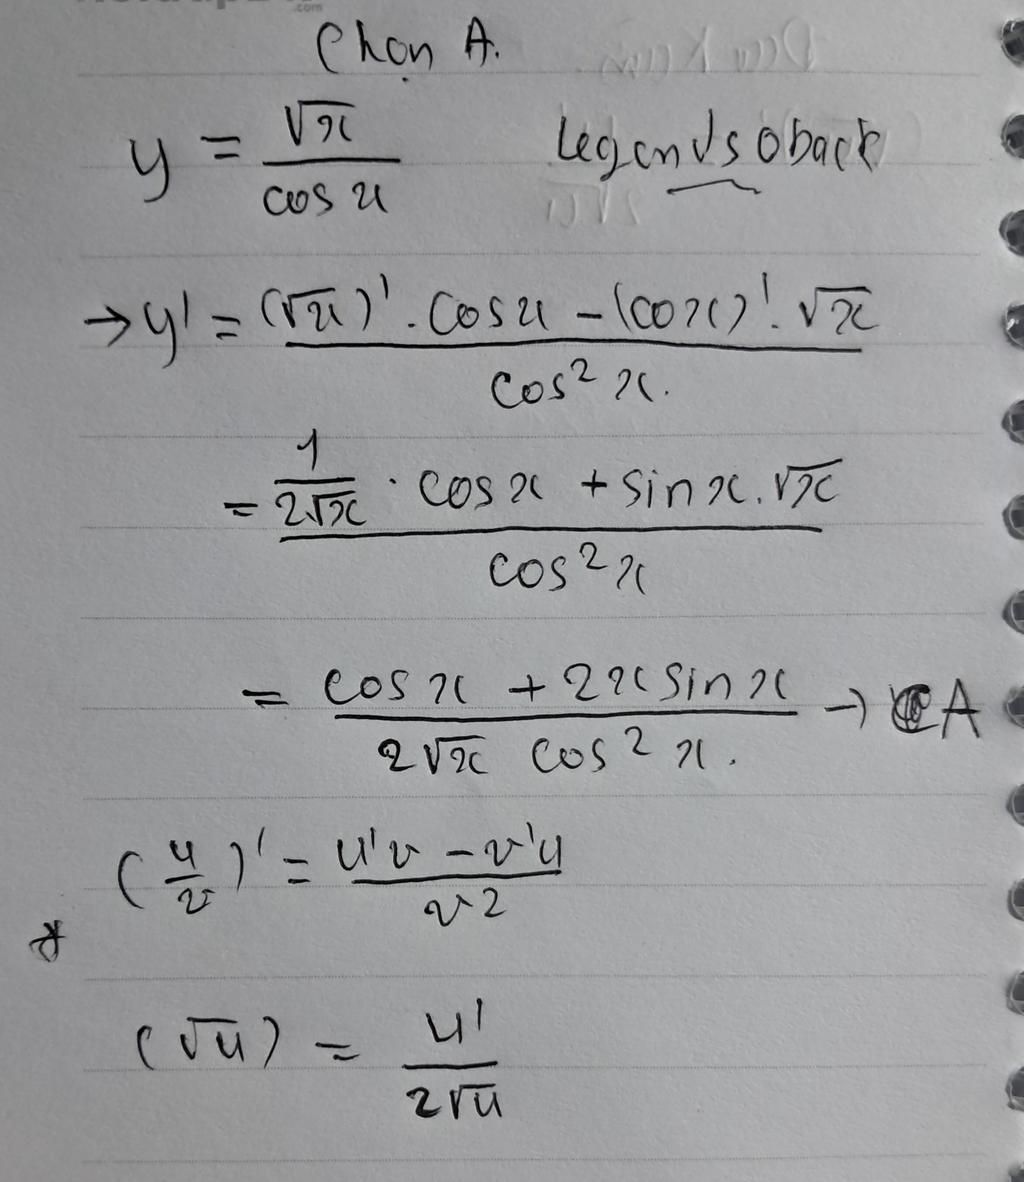 .com
Chọn A.
y = √x / cos x
Legends0back
→ y' = (√x)' . cos x - (cosx)' . √x / cos² x.
= 1/2√x . cos x + sin x . √x / cos² x
= cos x + 2x sin x / 2√x cos² x. → A
(u/v)' = u'v - v'u / v²
*
(√u) = u' / 2√u